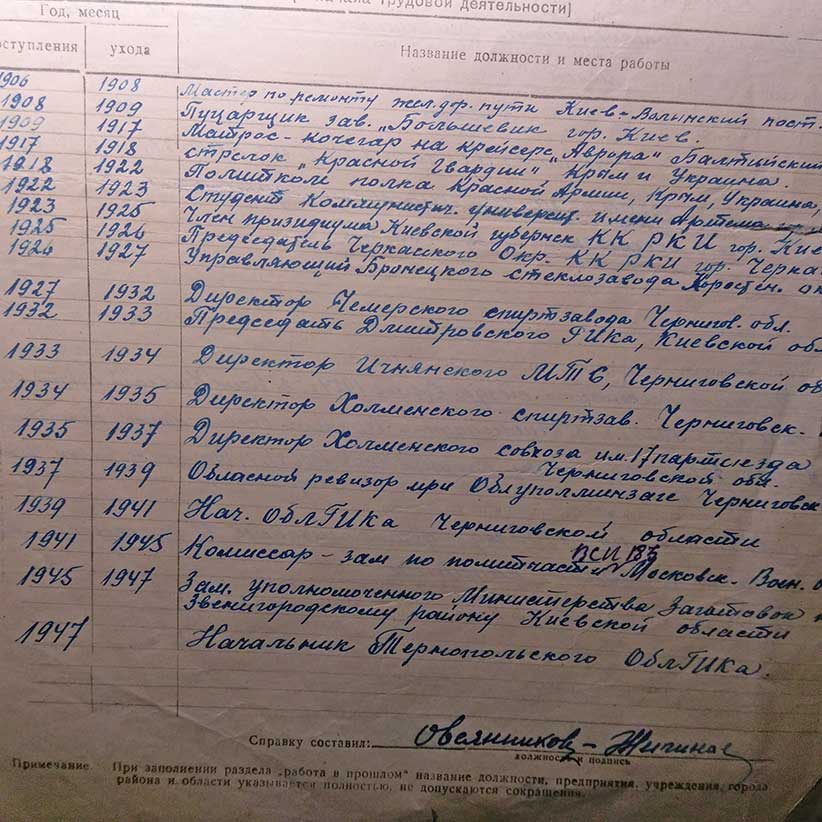 трудовой деятельности]
Год, месяц
оступления ухода Название должности и места работы
1906 1908 Мастер по ремонту жел.дор. пути Киев-Волынский пост.
1908 1909 Пуцарщик зав. „Большевик" гор. Киев.
1909 1917 Матрос-кочегар на крейсере „Аврора" Балтийский
1917 1918 стрелок „Красной Гвардии" Крым и Украина.
1918 1922 Политком полка Красной Армии, Крым, Украина,
1922 1923 Студент Коммунистич. университ. имени Артема
1923 1925 Член призидиума Киевской губернск КК РКИ гор. Кие
1925 1926 Председатель Черкасского Окр. КК РКИ гор. Черка
1926 1927 Управляющий Бронецкого стеклозавода Коростен. ок
1927 1932 Директор Чемерского спиртзавода Чернигов. обл.
1932 1933 Председать Дмитровского РИКа, Киевской обл
1933 1934 Директор Ичнянского МТС, Черниговской об
1934 1935 Директор Холменского спиртзав. Черниговск.
1935 1937 Директор Холменского совхоза им. 17 партсъезда
Черниговской обл.
1937 1939 Обласной ревизор при Облуполминзаге Черниговск
1939 1941 Нач. ОблГИКа Черниговской области
1941 1945 Комиссар-зам по политчасти Московск. Воен. о
1945 1947 Зам. уполномоченного Министерства Заготовок
Звенигородскому району Киевской области
1947 Начальник Тернопольского ОблГИКа.
Справку составил: Овсянников-Жигинас
должность и подпись
Примечание. При заполнении раздела „работа в прошлом" название должности, предприятия, учреждения, города
района и области указывается полностью, не допускаются сокращения.